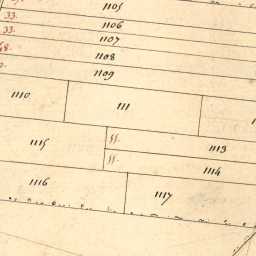 33. 1105
33. 1106
1107
1108
1109
1110 111
1115 ff. 1113
ff. 1114
1116 1117